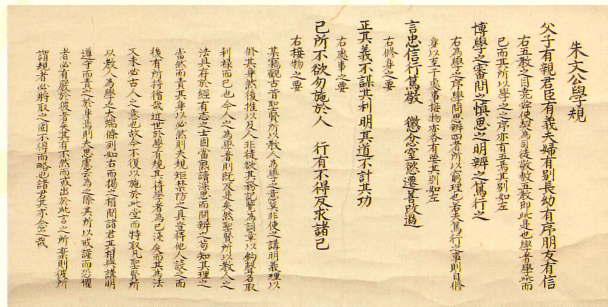 朱文公學規
父子有親君臣有義夫婦有別長幼有序朋友有信
右五教之目堯舜使契為司徒敬敷五教即此是也學者學此而
已而其所以學之之序亦有五焉其別如左
博學之審問之慎思之明辨之篤行之
右為學之序學問思辨四者所以窮理也若夫篤行之事則自脩
身以至于處事接物亦各有要其別如左
言忠信行篤敬 懲忿窒慾遷善改過
右脩身之要
正其義不謀其利明其道不計其功
右處事之要
己所不欲勿施於人 行有不得反求諸己
右接物之要
某竊觀古昔聖賢所以教人為學之意莫非使之講明義理以
脩其身然後推以及人非徒欲其務記覽為詞章以釣聲名取
利祿而已也今人之為學者則既反是矣然聖賢所以教人之
法具存於經有志之士固當熟讀深思而問辨之苟知其理之
當然而責其身以必然則夫規矩禁防之具豈待他人設之而
後有所持循哉近世於學有規其待學者為已淺矣而其為法
又未必古人之意也故今不復以施於此堂而特取凡聖賢所
以教人為學之大端條列如右而揭之楣間諸君其相與講明
遵守而責之於身焉則夫思慮云為之際其所以戒謹而恐懼
者必有嚴於彼者矣其有不然而或出於此言之所棄則彼所
謂規者必將取之固不得而略也諸君其亦念之哉